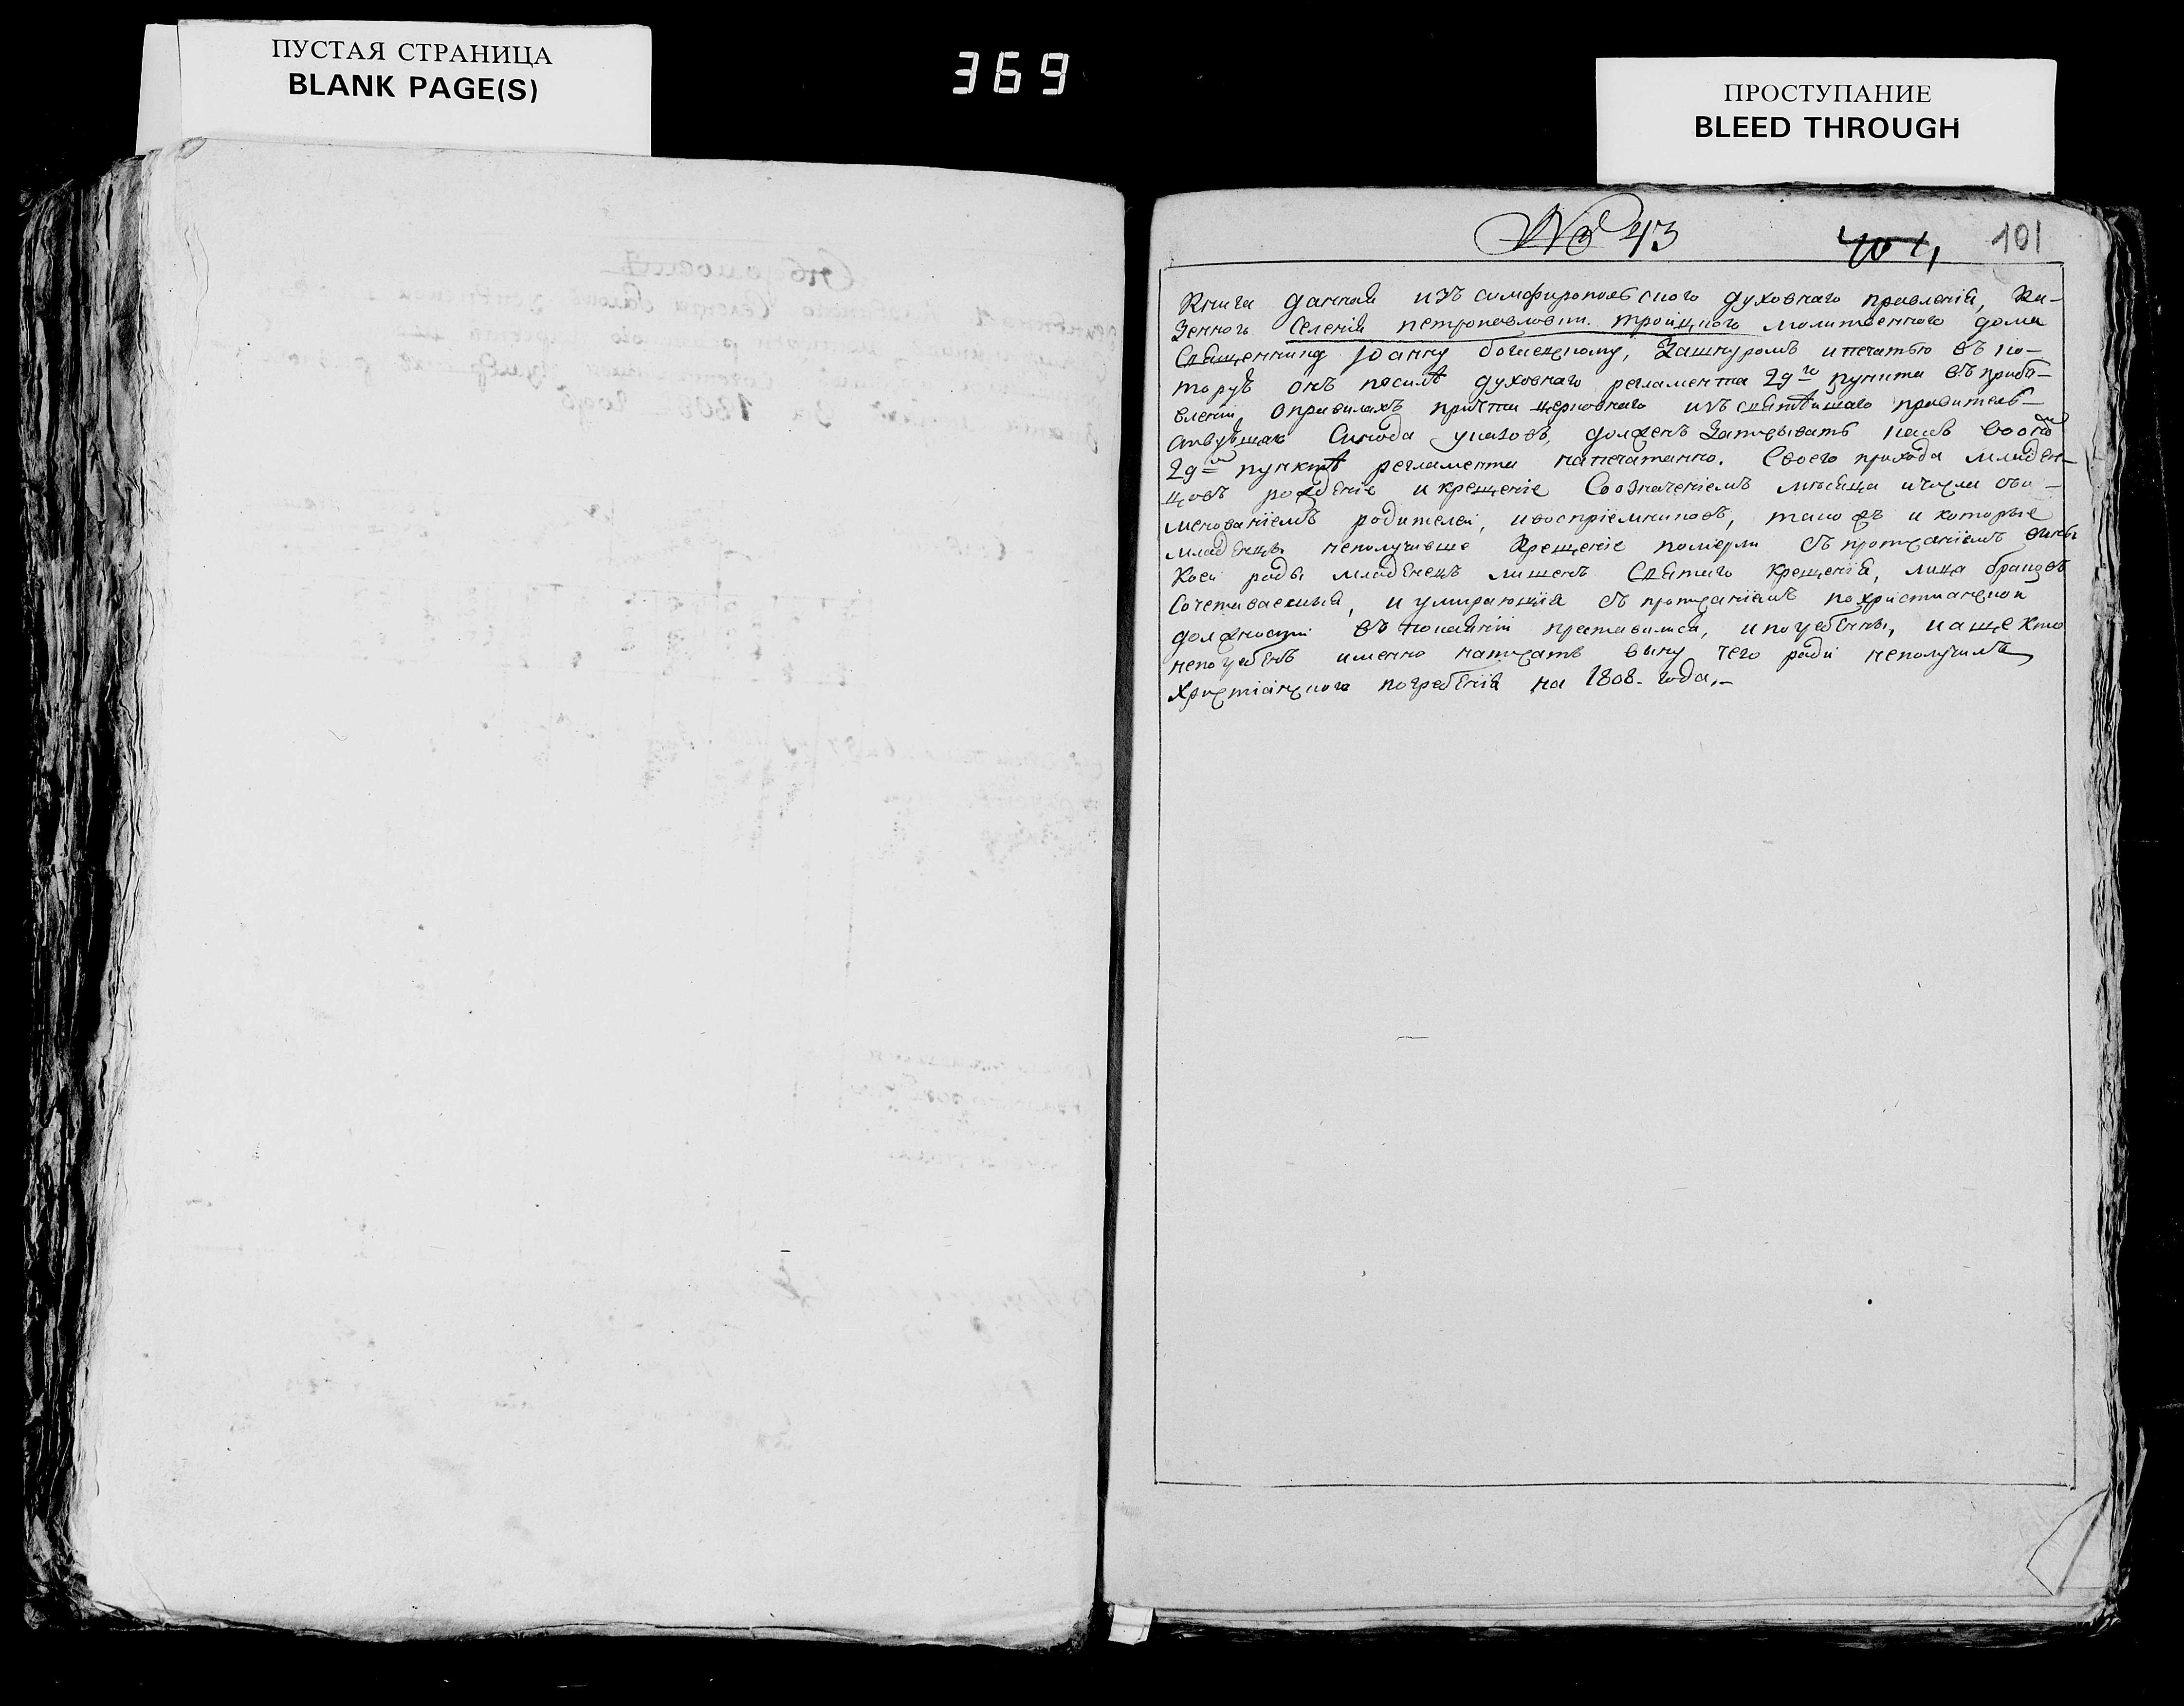 ПУСТАЯ СТРАНИЦА
BLANK PAGE(S)
369
ПРОСТУПАНИЕ
BLEED THROUGH
№ 43
101
Книга данная изъ симфиропольского духовнаго правленія, Ка-
зенного Селенія петропавловки троицкого молитвенного дома
Священнику Іоанну, Зашнуромъ ипечатью въ ко-
торую онъ посилѣ духовнаго регламента 29го пункта въ приба-
вленіи оправилахъ причта церковнаго изъ святѣйшаго правитель-
ствующаго Синода указовъ, долженъ Записывать какъ
29мъ пунктѣ регламента напечатанно. Своего прихода младен-
цовъ рожденіе и крещеніе Соозначеніемъ мѣсяца ичисла
менованіемъ родителей, ивоспріемниковъ, також и которые
младенцы неполучивше Крещеніе померли съ прописаніемъ вины
Коея ради младенецъ лишенъ Святаго крещенія, лица бракомъ
Сочетаваемыя, и умирающія съ прописаніемъ похристианской
должности въ покаяніи преставилися, ипогребенны, иаще кто
непогребенъ именно написать вину чего ради неполучилъ
Христіанского погребенія на 1808. года.-